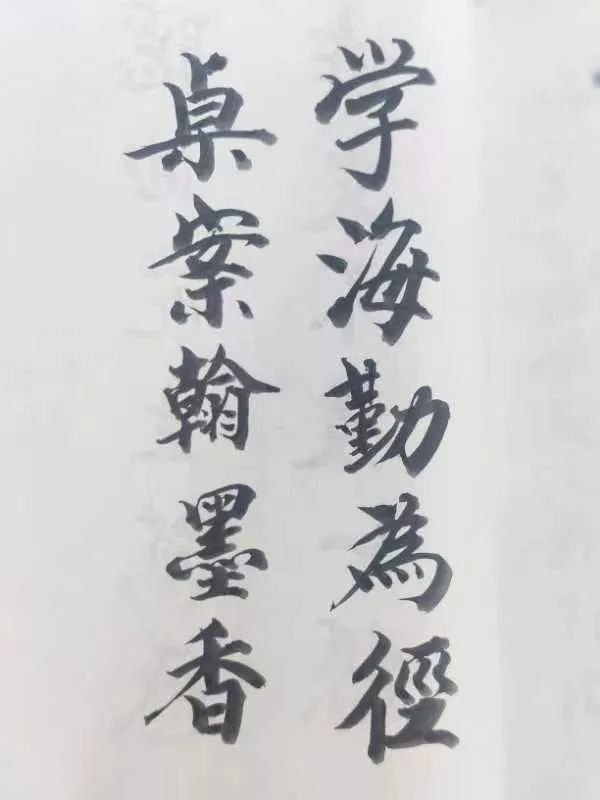 学海勤為徑
桌案翰墨香